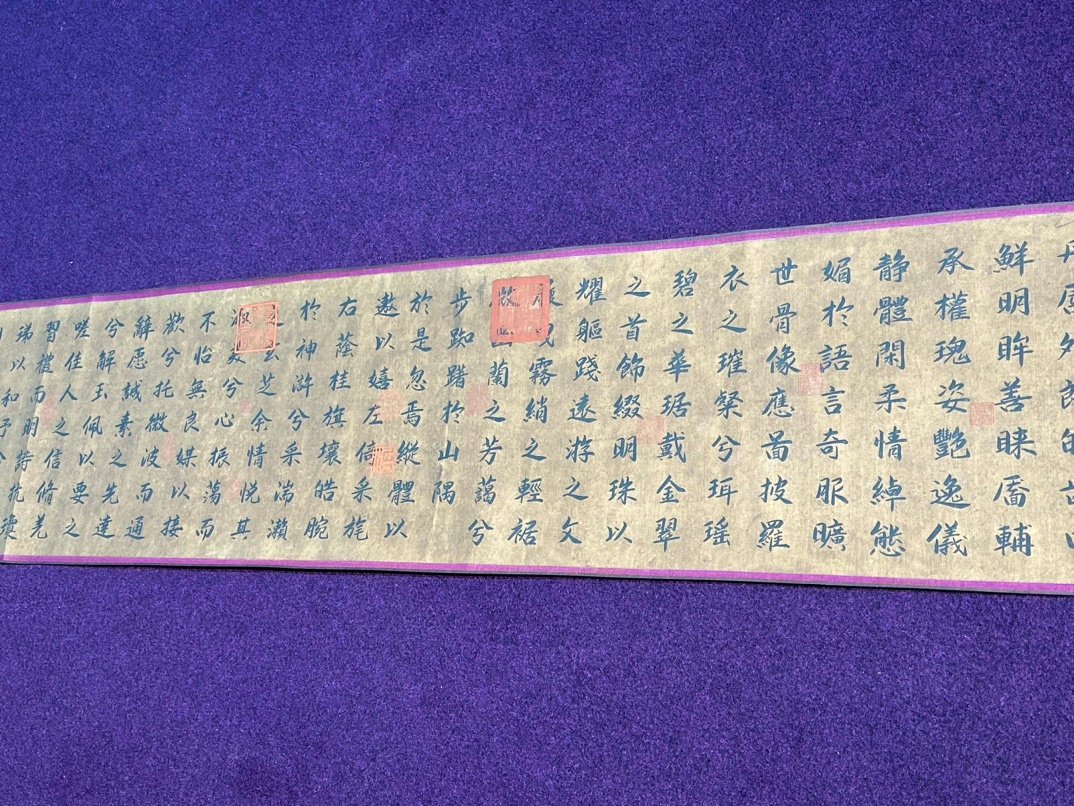 外朗
鮮明眸善睞靨輔
承權瑰姿艷逸儀
靜體閑柔情綽態
媚於語言奇服曠
世骨像應圖披羅
衣之璀粲兮珥瑤
碧之華琚戴金翠
之首飾綴明珠以
耀軀踐遠游之文
履曳霧綃之輕裾
微幽蘭之芳藹兮
步踟躕於山隅
於是忽焉縱體以
遨以嬉左倚采旄
右蔭桂旗壤皓腕
於神滸兮采湍瀨
之玄芝余情悅其
淑美兮心振蕩而
不怡無良媒以接
歡兮托微波而通
辭愿誠素之先達
兮解玉佩以要之
嗟佳人之信脩羌
習禮而明詩抗瓊
珶以和予兮